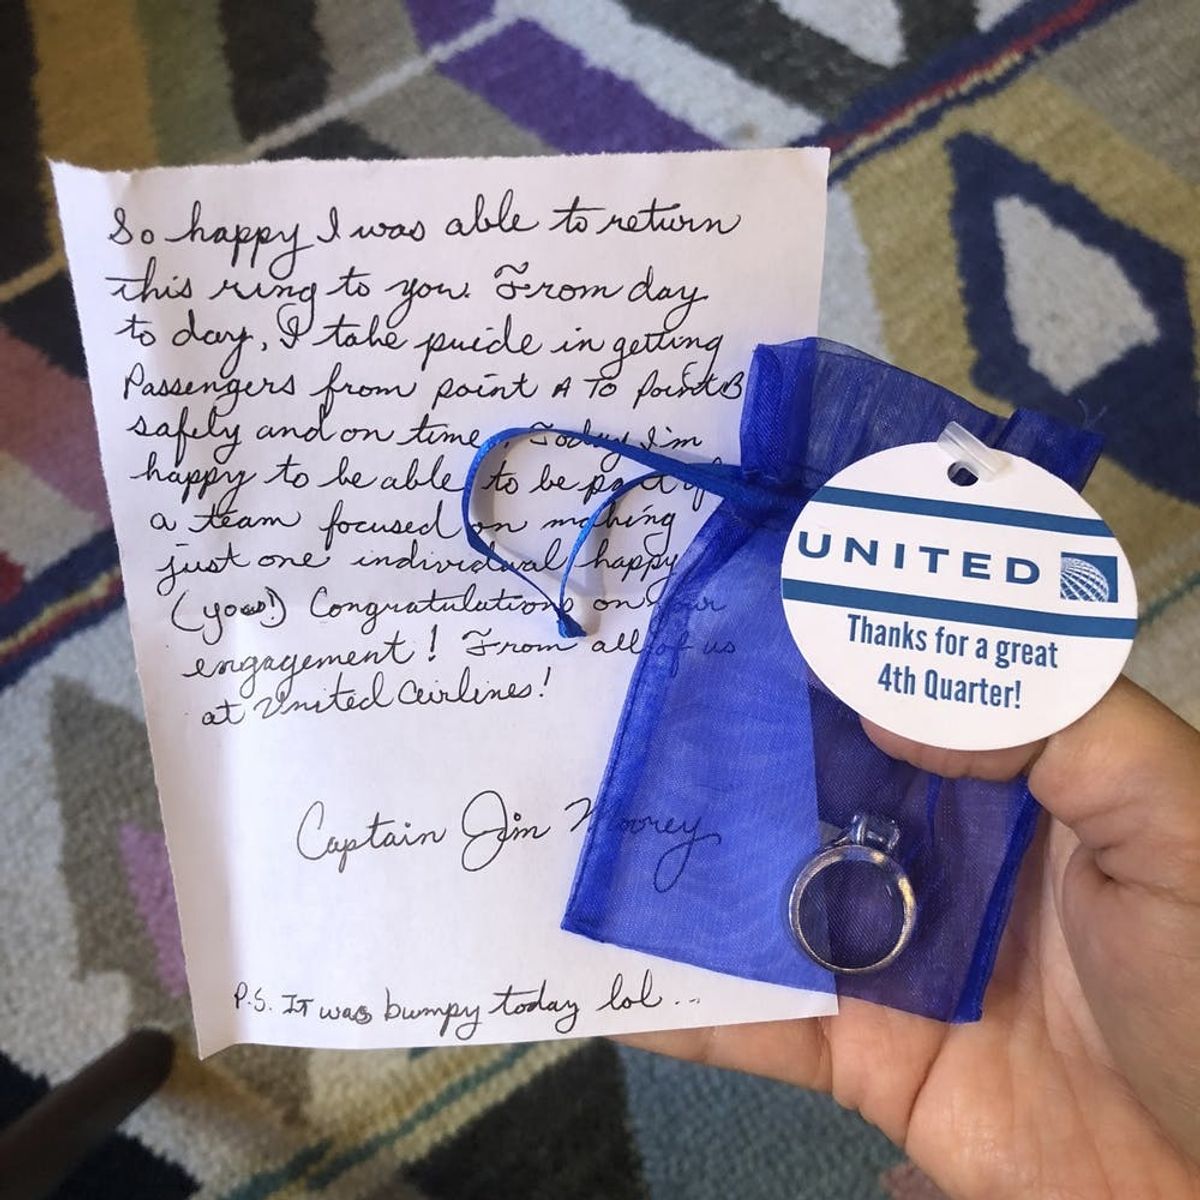 So happy I was able to return
this ring to you. From day
to day, I take pride in getting
Passengers from point A To Point B
safely and on time. Today I'm
happy to be able to be part of
a team focused on making
just one individual happy
(you!) Congratulations on your
engagement! From all of us
at United Airlines!
Captain Jim Moorey
P.S. IT was bumpy today lol...
UNITED
Thanks for a great
4th Quarter!